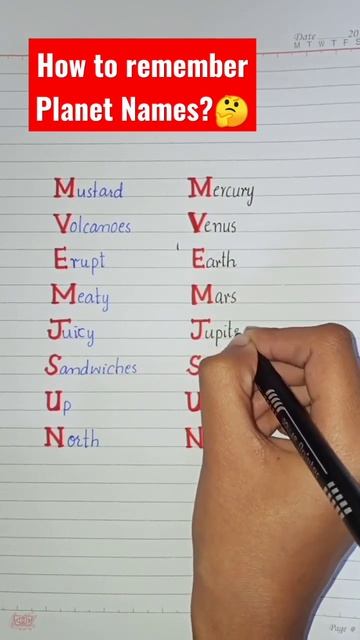 Date 20
M T W T F S
How to remember
Planet Names?🤔
Mustard Mercury
Volcanoes Venus
Erupt Earth
Meaty Mars
Juicy Jupite
Sandwiches S
Up U
North N
Page #